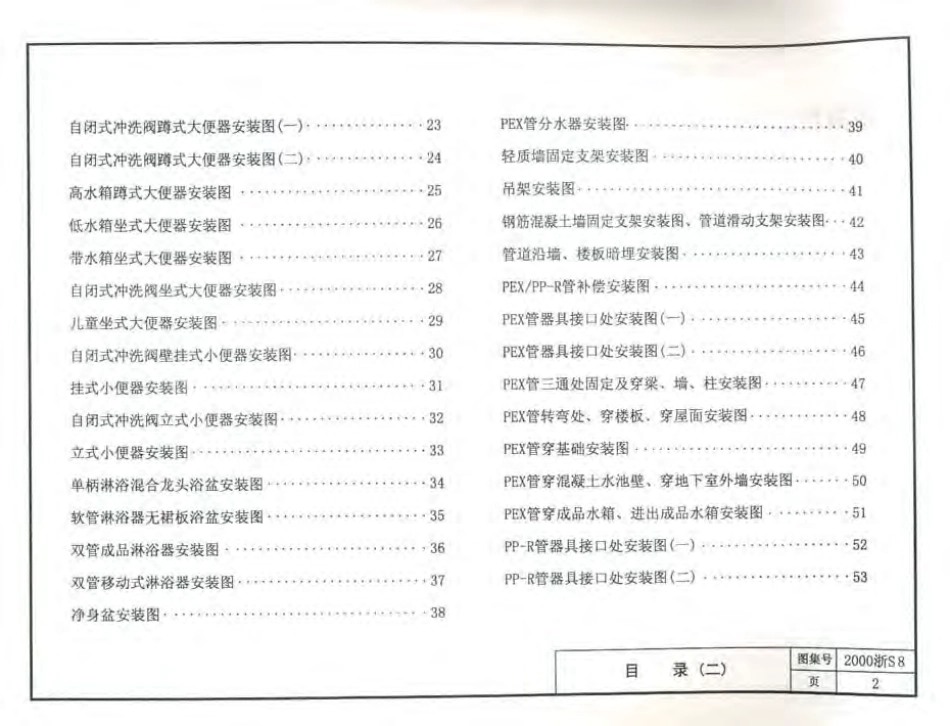 自闭式冲洗阀蹲式大便器安装图(一)··············23
自闭式冲洗阀蹲式大便器安装图(二)··············24
高水箱蹲式大便器安装图······················25
低水箱坐式大便器安装图······················26
带水箱坐式大便器安装图······················27
自闭式冲洗阀坐式大便器安装图·················28
儿童坐式大便器安装图························29
自闭式冲洗阀壁挂式小便器安装图···············30
挂式小便器安装图····························31
自闭式冲洗阀立式小便器安装图·················32
立式小便器安装图····························33
单柄淋浴混合龙头浴盆安装图···················34
软管淋浴器无裙板浴盆安装图···················35
双管成品淋浴器安装图························36
双管移动式淋浴器安装图······················37
净身盆安装图································38
PEX管分水器安装图··························39
轻质墙固定支架安装图·······················40
吊架安装图································41
钢筋混凝土墙固定支架安装图、管道滑动支架安装图···42
管道沿墙、楼板暗埋安装图····················43
PEX/PP-R管补偿安装图·······················44
PEX管器具接口处安装图(一)···················45
PEX管器具接口处安装图(二)···················46
PEX管三通处固定及穿梁、墙、柱安装图··········47
PEX管转弯处、穿楼板、穿屋面安装图············48
PEX管穿基础安装图··························49
PEX管穿混凝土水池壁、穿地下室外墙安装图·······50
PEX管穿成品水箱、进出成品水箱安装图··········51
PP-R管器具接口处安装图(一)··················52
PP-R管器具接口处安装图(二)··················53
目 录(二)
图集号 2000浙S8
页 2